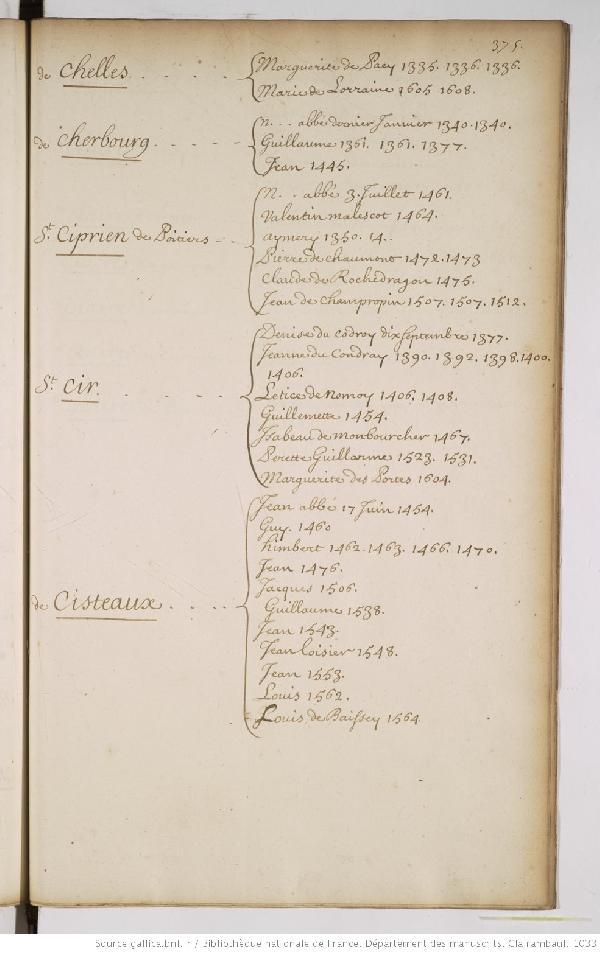 375.
de Chelles. . . . . Marguerite de Pacy 1335. 1336. 1336.
Marie de Lorraine 1605. 1608.
de Cherbourg. . . . . N... abbé dernier Janvier 1340. 1340.
Guillaume 1361. 1361. 1377.
Jean 1445.
St. Ciprien de Poitiers N. . abbé 3. Juillet 1461.
Valentin malescot 1464.
aymery 1350. 14..
Pierre de chaumont 1472. 1473
Claude de Rochedragon 1475.
Jean de Champropin 1507. 1507. 1512.
St. Cir. . . . . Denise du dix septembre 1377.
Jeanne du Condray 1390. 1392. 1398. 1400.
1406.
Letice de 1406. 1408.
Guillemette 1454.
Isabeau de Monbourcher 1467.
Perette Guillaume 1523. 1531.
Marguerite des Portes 1604.
de Cisteaux. . . . . Jean abbé 17 Juin 1454.
Guy. 1460
himbert 1462. 1463. 1466. 1470.
Jean 1476.
Jacques 1506.
Guillaume 1538.
Jean 1543.
Jean loisier 1548.
Jean 1553.
Louis 1562.
Louis de Baissey 1564
Source gallica.bnf.fr / Bibliothèque nationale de France. Département des manuscrits. Clairambault 1033